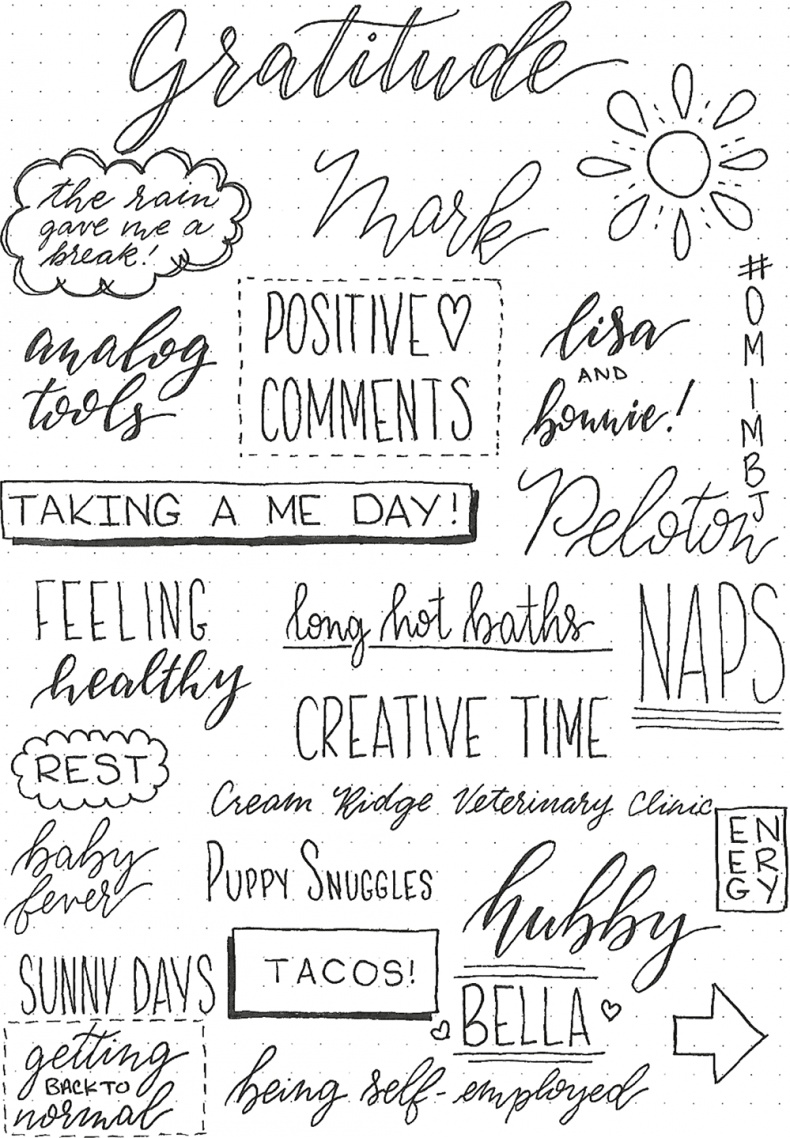 Gratitude
the rain
gave me a
break!
Mark
analog
tools
POSITIVE
COMMENTS
lisa
AND
bonnie!
#OMIMBJ
TAKING A ME DAY!
Peloton
FEELING
healthy
long hot baths
NAPS
CREATIVE TIME
REST
Cream Ridge Veterinary Clinic
EN
ER
GY
baby
fever
PUPPY SNUGGLES
hubby
SUNNY DAYS
TACOS!
BELLA
getting
BACK TO
normal
being self-employed